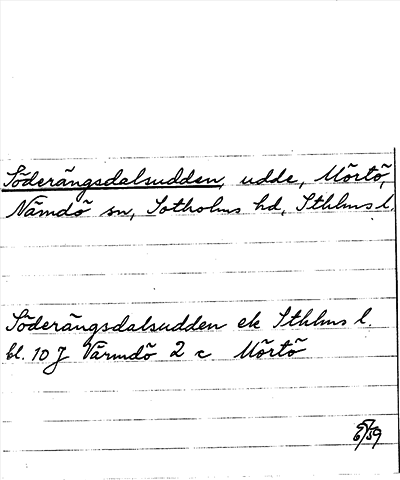 Söderängsdalsudden, udde, Mörtö,
Nämdö sn, Sotholms hd, Sthlms l.
Söderängsdalsudden ek Sthlms l.
bl. 10 J Värmdö 2 c Mörtö